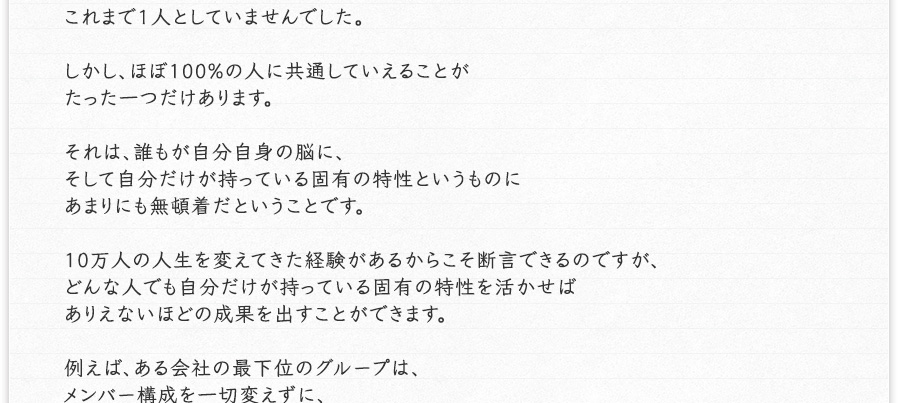 これまで1人としていませんでした。
しかし、ほぼ100%の人に共通していえることが
たった一つだけあります。
それは、誰もが自分自身の脳に、
そして自分だけが持っている固有の特性というものに
あまりにも無頓着だということです。
10万人の人生を変えてきた経験があるからこそ断言できるのですが、
どんな人でも自分だけが持っている固有の特性を活かせば
ありえないほどの成果を出すことができます。
例えば、ある会社の最下位のグループは、
メンバー構成を一切変えずに、